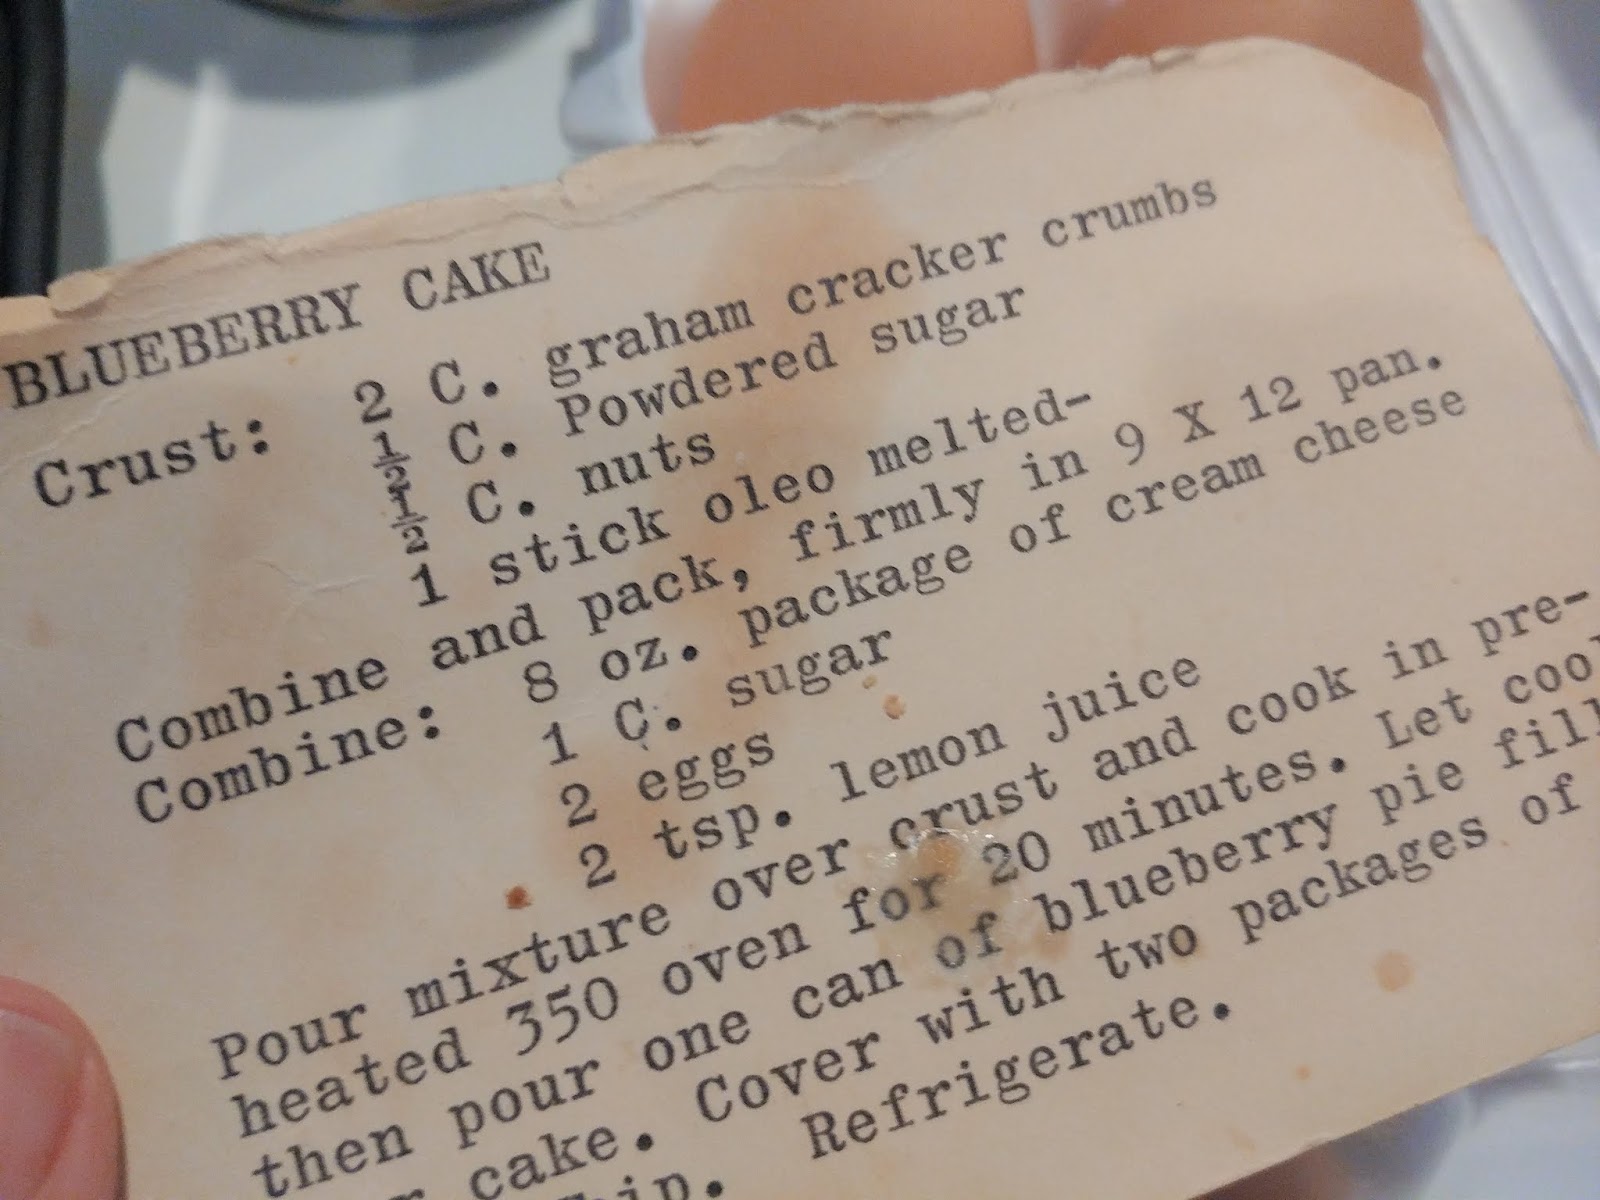 BLUEBERRY CAKE
Crust: 2 C. graham cracker crumbs
½ C. Powdered sugar
½ C. nuts
1 stick oleo melted-
Combine and pack, firmly in 9 X 12 pan.
Combine: 8 oz. package of cream cheese
1 C. sugar
2 eggs
2 tsp. lemon juice
Pour mixture over crust and cook in pre-
heated 350 oven for 20 minutes. Let cool
then pour one can of blueberry pie fill
cake. Cover with two packages of
Refrigerate.